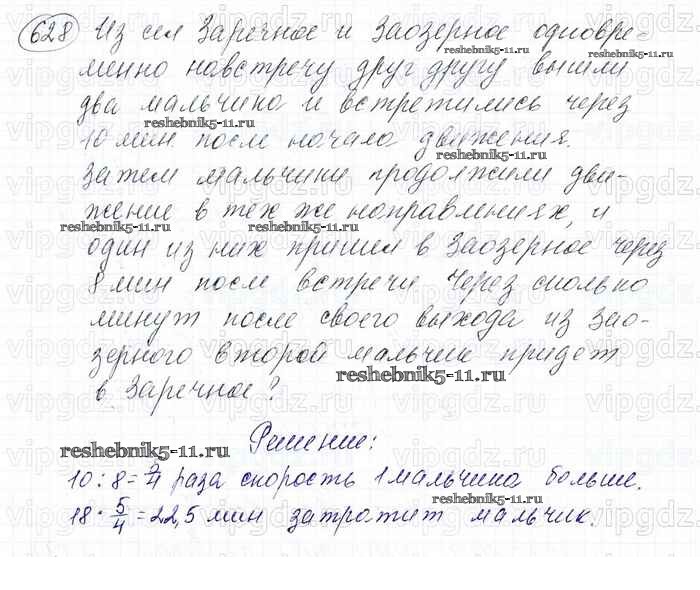 628 Из сел Заречное и Заозерное одновре-
менно навстречу друг другу вышли
два мальчика и встретились через
10 мин после начала движения.
Затем мальчики продолжили дви-
жение в тех же направлениях, и
один из них пришел в Заозерное через
8 мин после встречи. Через сколько
минут после своего выхода из Зао-
зерного второй мальчик придет
в Заречное?
reshebnik5-11.ru
reshebnik5-11.ru
reshebnik5-11.ru
reshebnik5-11.ru
reshebnik5-11.ru
Решение:
reshebnik5-11.ru
10 : 8 = 5/4 раза скорость 1 мальчика больше.
reshebnik5-11.ru
18 · 5/4 = 22,5 мин затратит мальчик.